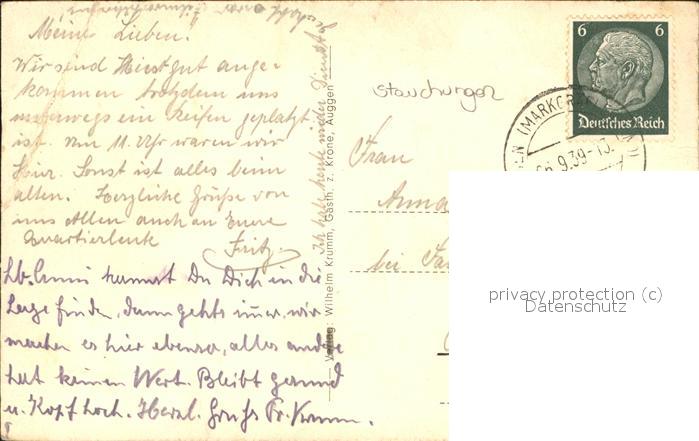 Meine Lieben!
Wir sind hier gut ange-
kommen trotzdem uns
unterwegs ein Reifen geplatzt
ist. Um 11 Uhr waren wir
hier. Sonst ist alles beim
alten. Herzliche Grüße von
uns Allen auch an Euere
Quartierleute
Fritz.
Lb. Anni kannst Du Dich in die
Lage finden, dann gehts immer, wir
machen es hier ebenso, alles andere
hat keinen Wert. Bleibt gesund
u. Kopf hoch. Herzl. Grüße Fr. Krumm.
Ich habe heute wieder Dienst
Verlag: Wilhelm Krumm, Gasth. z. Krone, Auggen
stauchungen
6 6
Deutsches Reich
(MARKGR
9.39-13
Frau
Anna
bei Fa
privacy protection (c)
Datenschutz